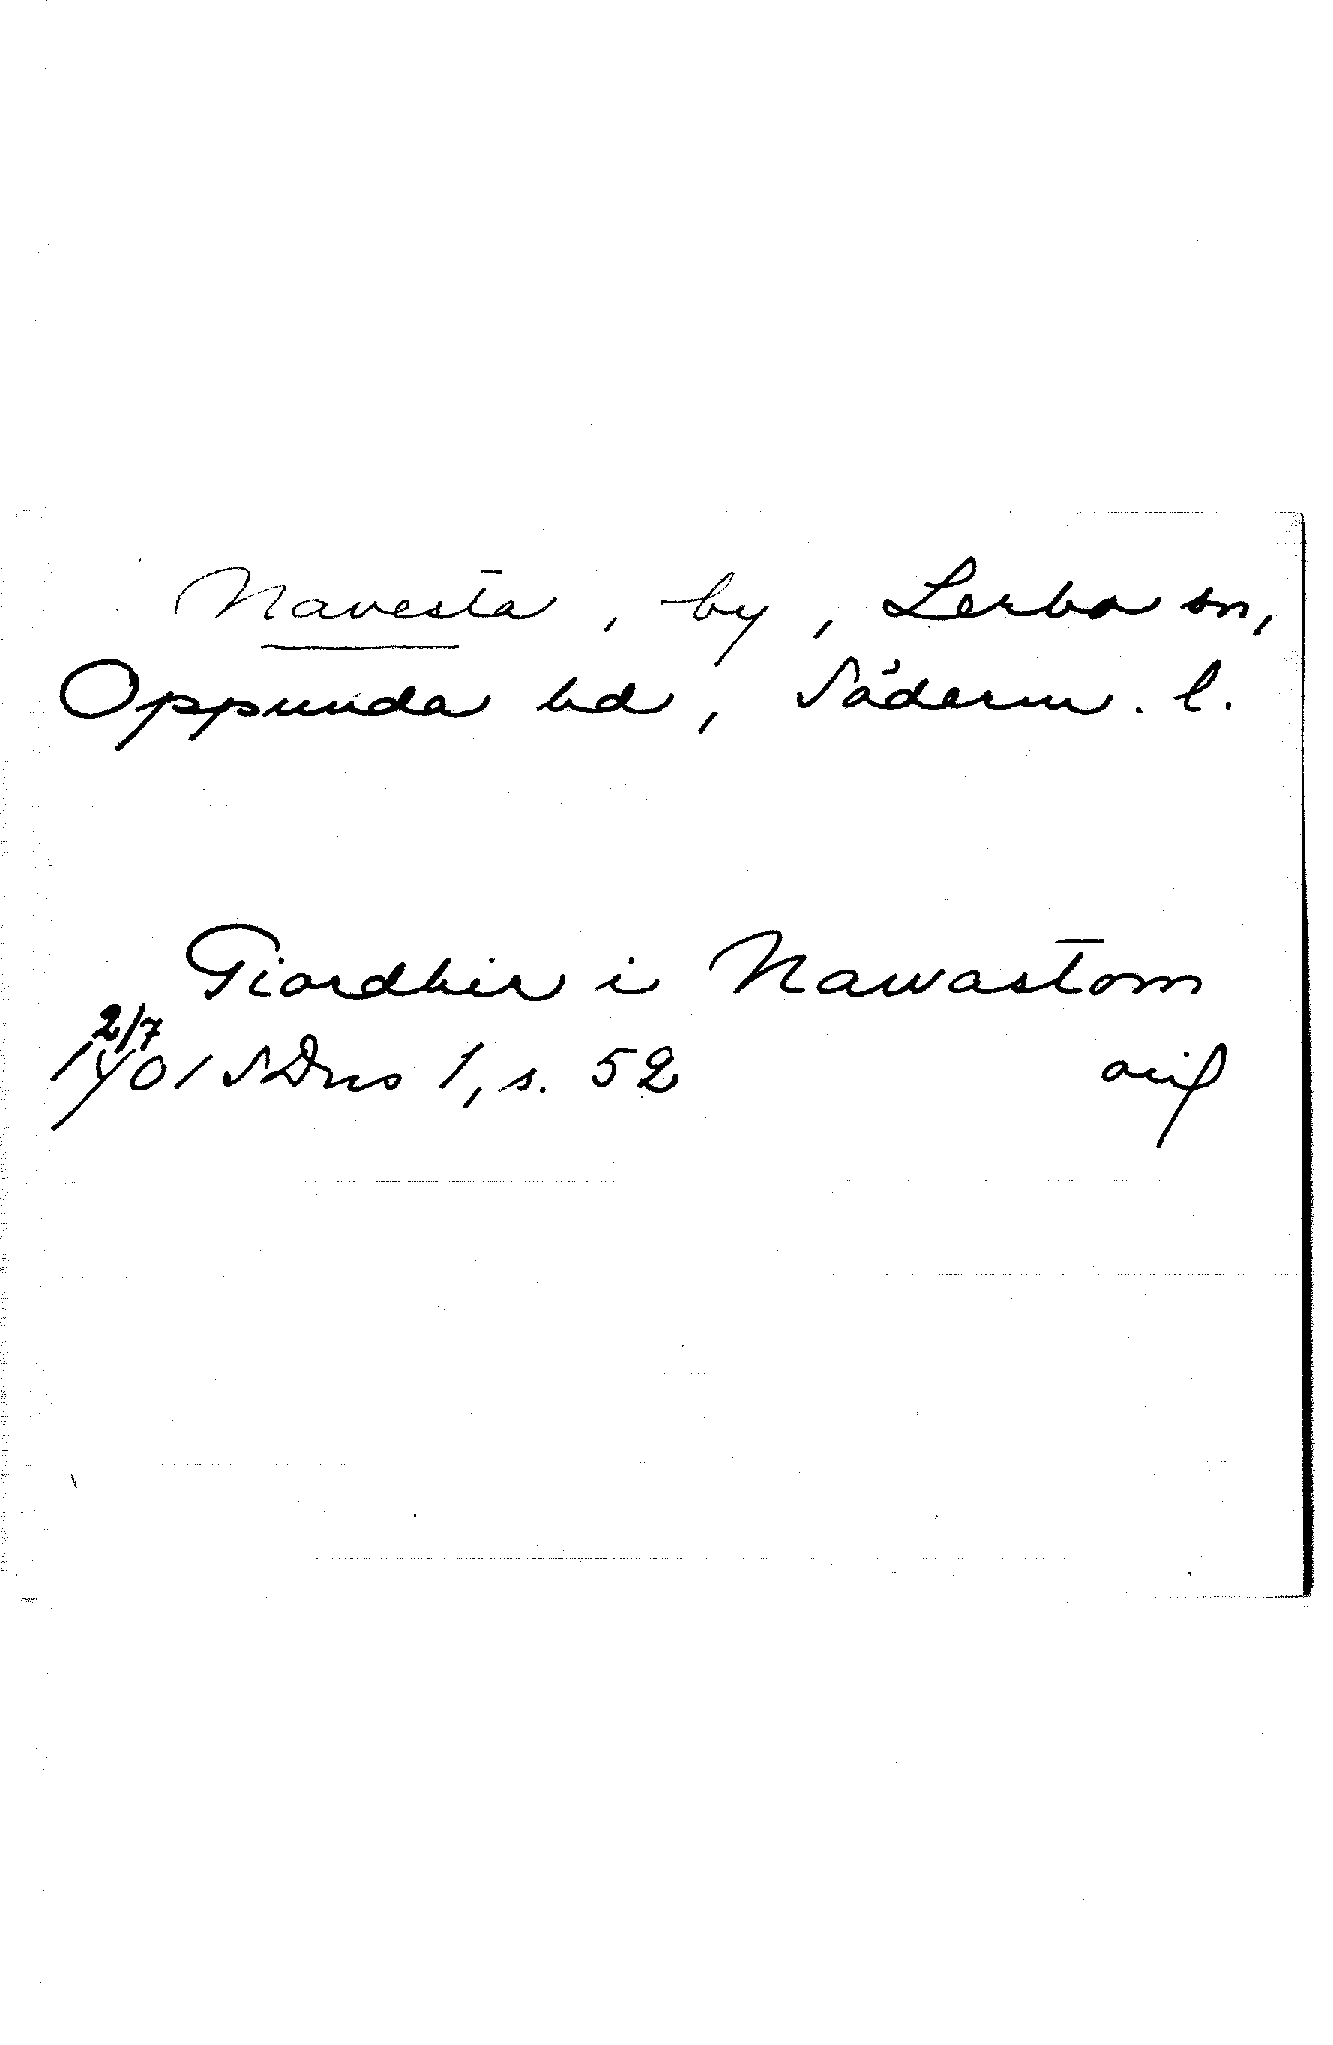 Navesta, by, Lerbo sn,
Oppunda hd, Söderm. l.
Giordhir i Nawastom
2/7
1401 SDns 1, s. 52